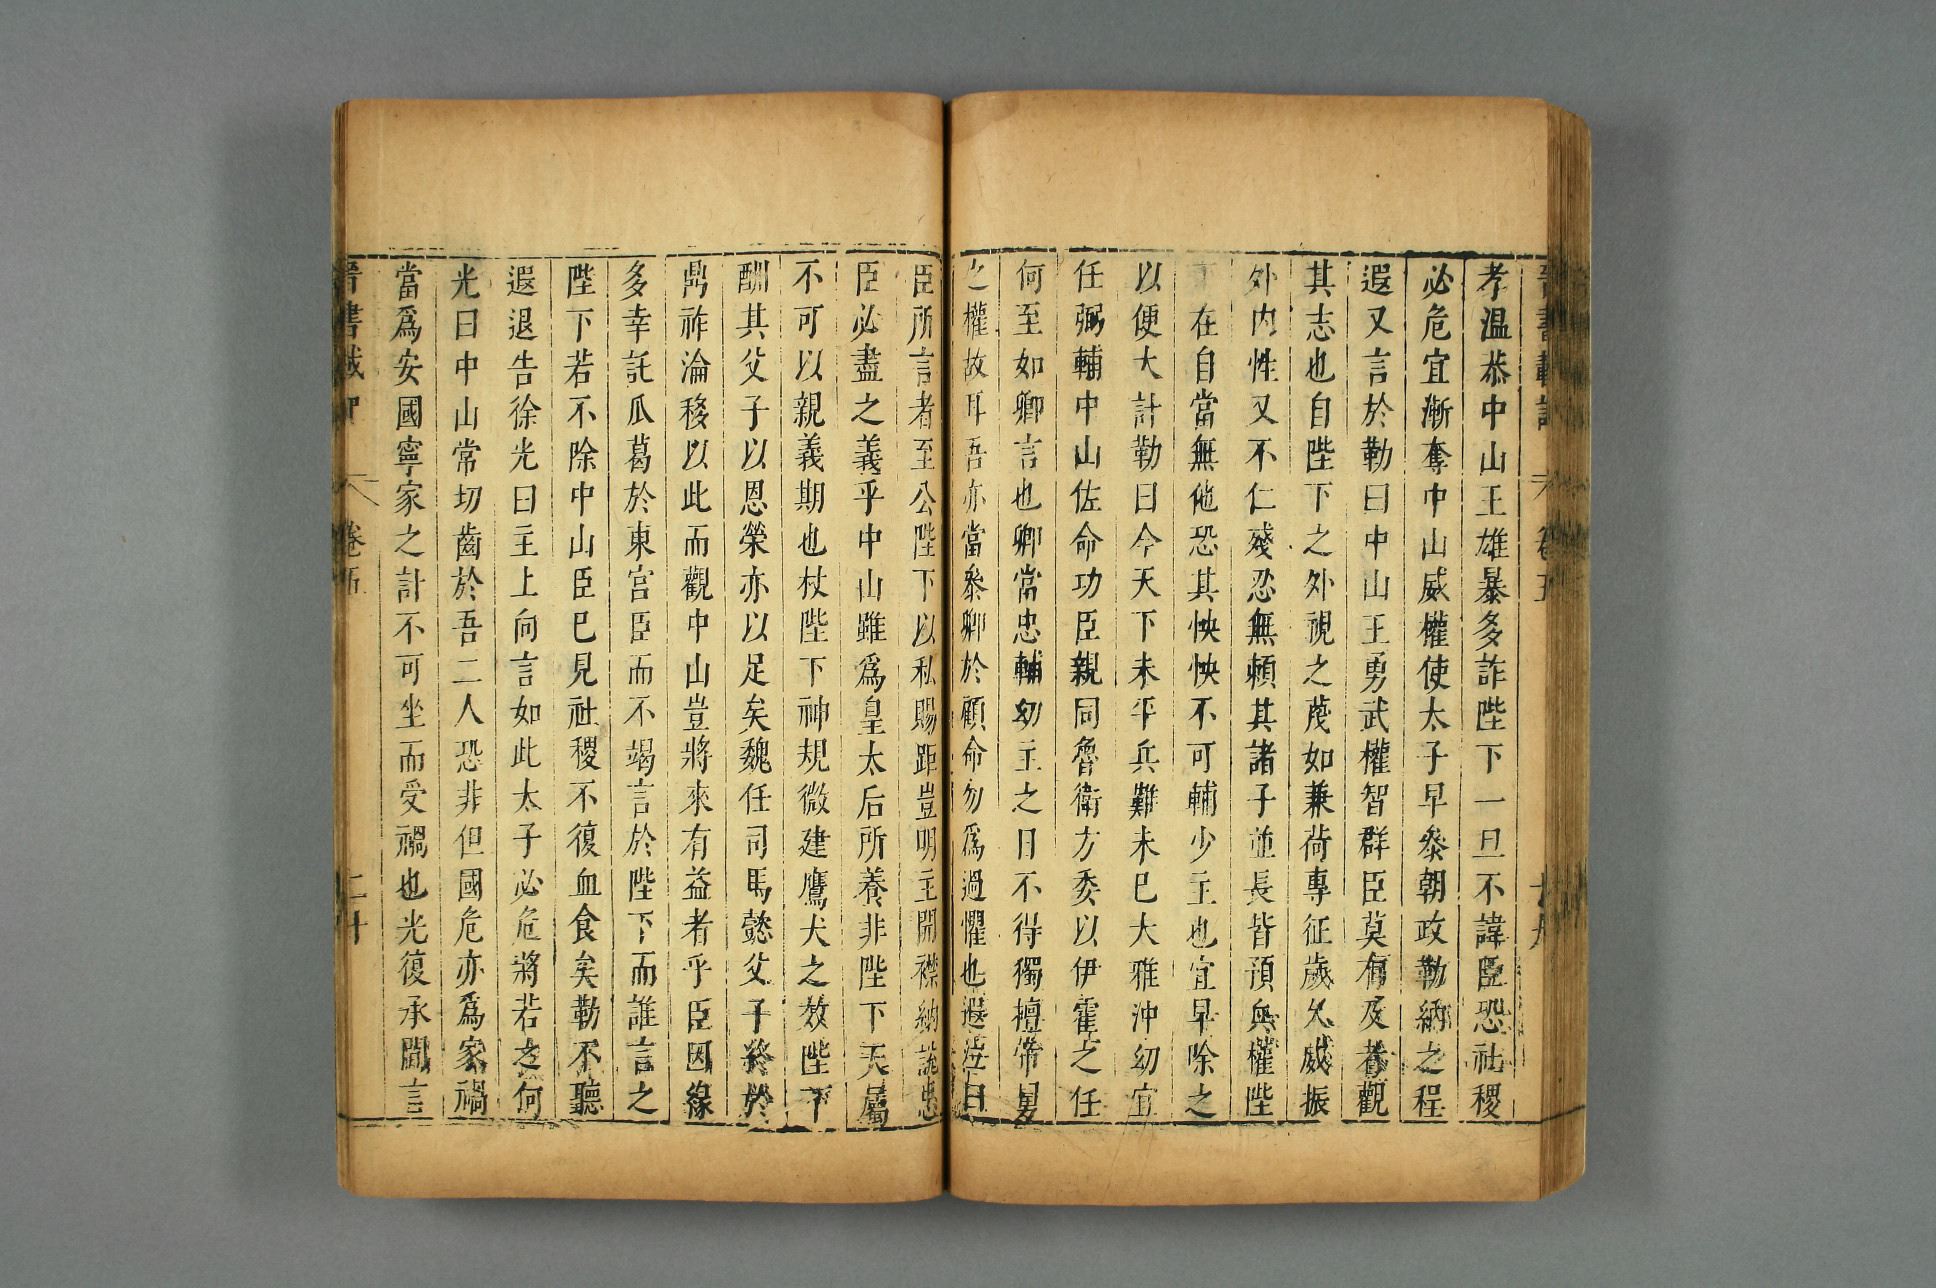 晉書載記 卷五 十九
孝温恭中山王雄暴多詐陛下一旦不諱臣恐社稷
必危宜漸奪中山威權使太子早叅朝政勒納之程
遐又言於勒曰中山王勇武權智群臣莫有及者觀
其志也自陛下之外視之蔑如兼荷專征歲久威振
外内性又不仁殘忍無頼其諸子並長皆預兵權陛
在自當無他恐其怏怏不可輔少主也宜早除之
以便大計勒曰今天下未平兵難未已大雅沖幼宜
任弼輔中山佐命功臣親同魯衛方委以伊霍之任
何至如卿言也卿當忠輔幼主之日不得獨擅帝舅
之權故耳吾亦當叅卿於顧命勿爲過懼也遐泣曰
臣所言者至公陛下以私賜距豈明主開襟納說忠
臣必盡之義乎中山雖爲皇太后所養非陛下天屬
不可以親義期也杖陛下神規微建鷹犬之效陛下
酬其父子以恩榮亦以足矣魏任司馬懿父子終於
鼎祚淪移以此而觀中山豈將來有益者乎臣因緣
多幸託瓜葛於東宮臣而不竭言於陛下而誰言之
陛下若不除中山臣已見社稷不復血食矣勒不聽
遐退告徐光曰主上向言如此太子必危將若之何
光曰中山常切齒於吾二人恐非但國危亦爲家禍
當爲安國寧家之計不可坐而受禍也光復承間言
晉書載 卷五 二十